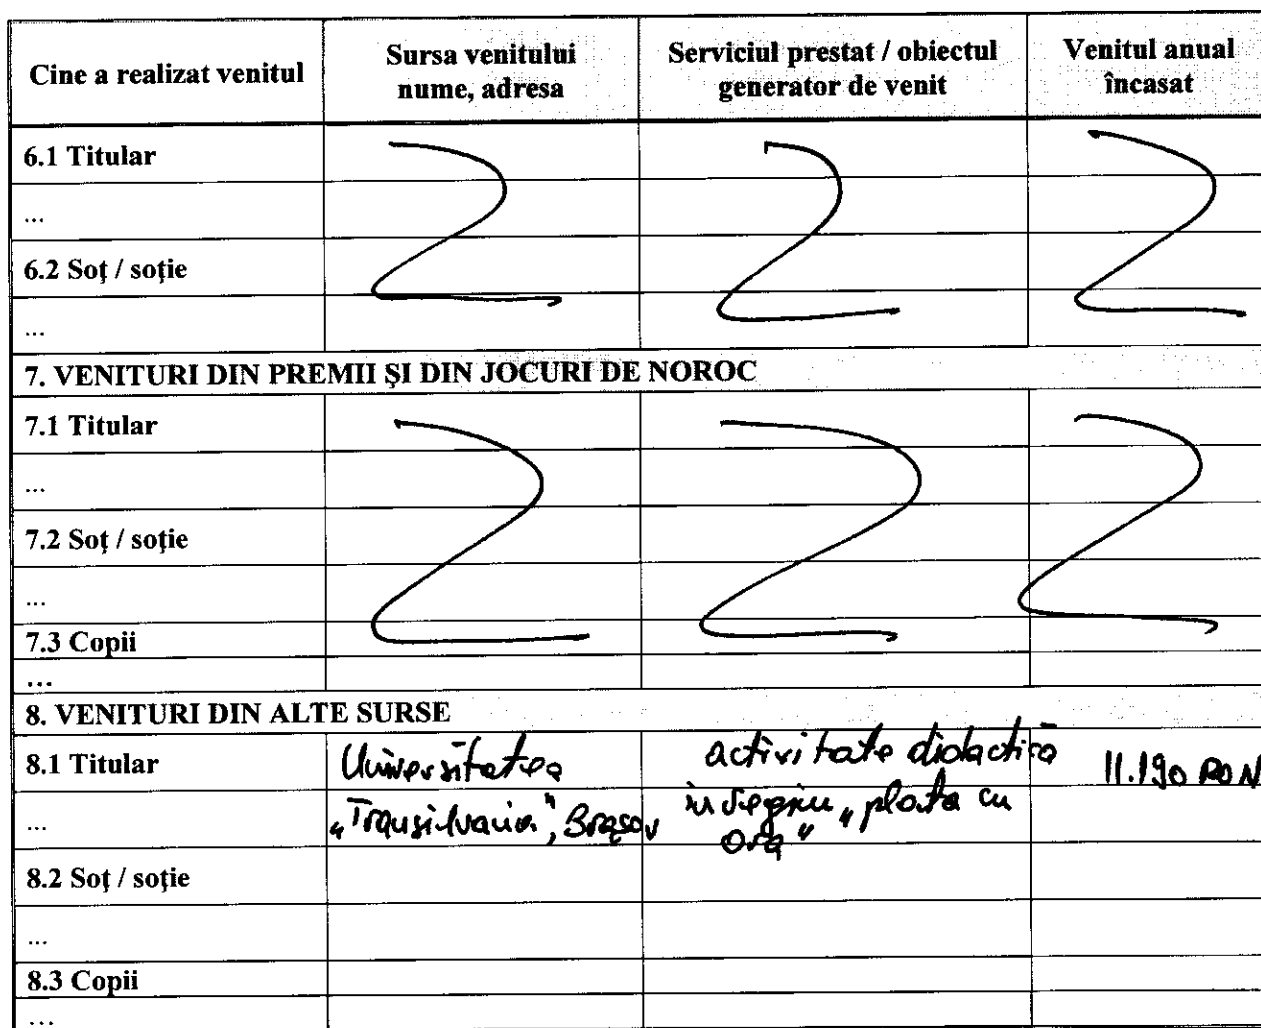 Cine a realizat venitul
Sursa venitului
nume, adresa
Serviciul prestat / obiectul
generator de venit
Venitul anual
încasat
6.1 Titular
...
6.2 Soţ / soţie
...
7. VENITURI DIN PREMII ŞI DIN JOCURI DE NOROC
7.1 Titular
...
7.2 Soţ / soţie
...
7.3 Copii
...
8. VENITURI DIN ALTE SURSE
8.1 Titular
Universitatea
activitate didactică
11.190 RON
...
„Transilvania”, Braşov
în regim „plata cu
ora”
8.2 Soţ / soţie
...
8.3 Copii
...